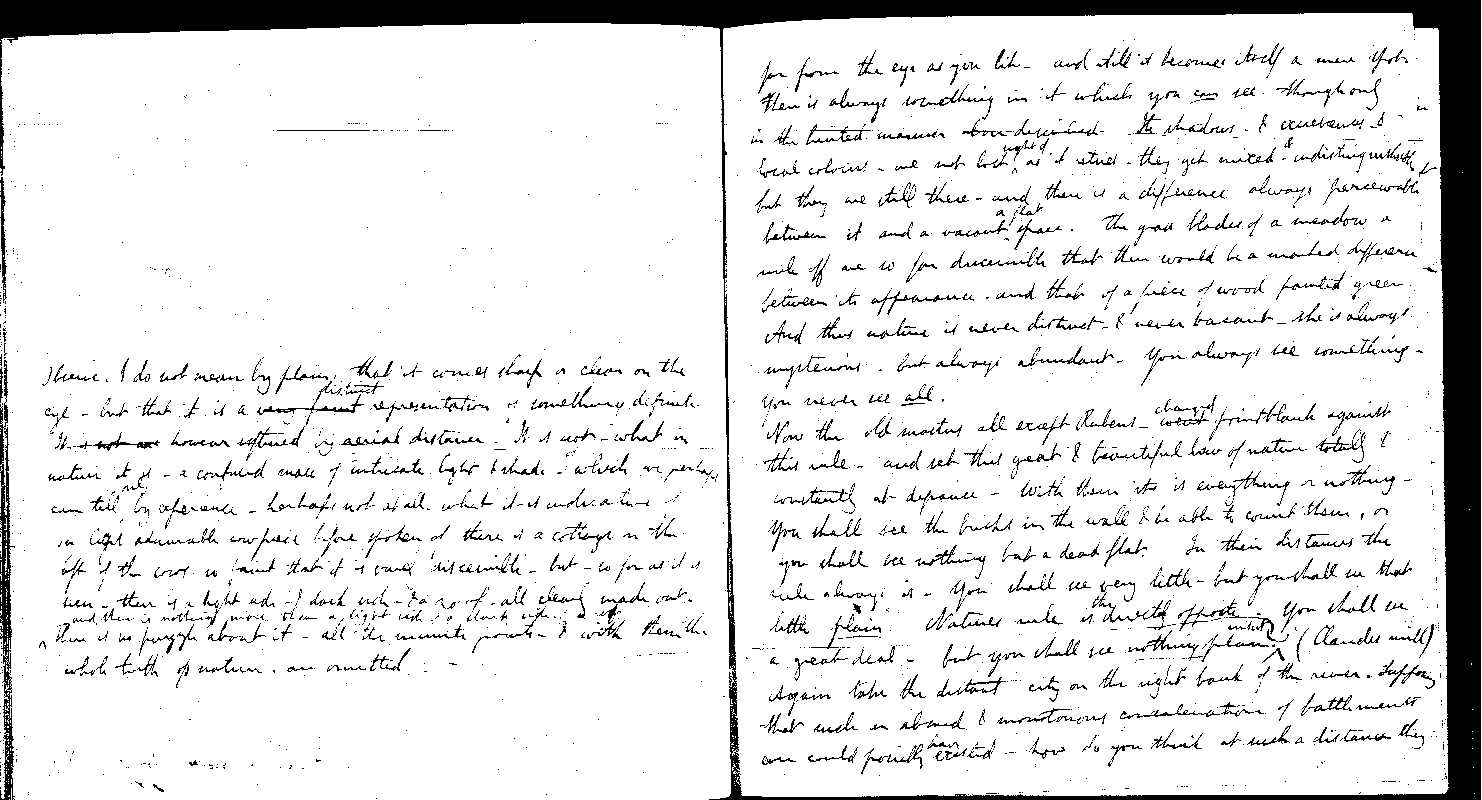 Observe. I do not mean by plain, that it comes sharp or clear on the
distinct
eye - but that it is a very faint representation of something definite
It is not an however softened by aerial distance - It is not - what in
nature it is - a confused mass of intricate light & shade - which we perhaps
can tell by experience - perhaps not at all - what it is indicative of
in Cuyp's admirable cowpiece before spoken of there is a cottage on the
left of the cows so faint that it is barely discernible - but - so far as it is
seen - there is a light side - & dark side - & a roof - all clearly made out -
and there is nothing more than a light side & a dark side
there is no puzzle about it - all the minute points - & with them the
whole truth of nature, are omitted -
far from the eye as you like - and till it becomes itself a mere spot -
there is always something in it which you can see - though only
in the hinted manner above described. Its shadows - & &
sight of
local colours - are not lost as it retires - they get mixed - & indistinguishable
but they are still there - and there is a difference always perceivable
a flat
between it and a vacant space. The grass blades of a meadow a
mile off are so far discernible that there would be a marked difference
between its appearance - and that of a piece of wood painted green
And thus nature is never distinct - & never vacant - she is always
mysterious - but always abundant - you always see something -
you never see all.
Now the old masters all except Rubens - went pointblank against
this rule - and set this great & beautiful law of nature totally &
constantly at defiance - With them it is everything or nothing -
You shall see the bricks in the wall & be able to count them, or
you shall see nothing but a dead flat. In their distances the
rule always is - You shall see very little - but you shall see that
little plain. Natures rule is the directly opposite - You shall see
a great deal - but you shall see nothing plain. (Claudes mill)
Again take the distant city on the right bank of the river - Supposing
that such an absurd & monotonous concatenation of battlements
have
ever could possibly existed - how do you think at such a distance they